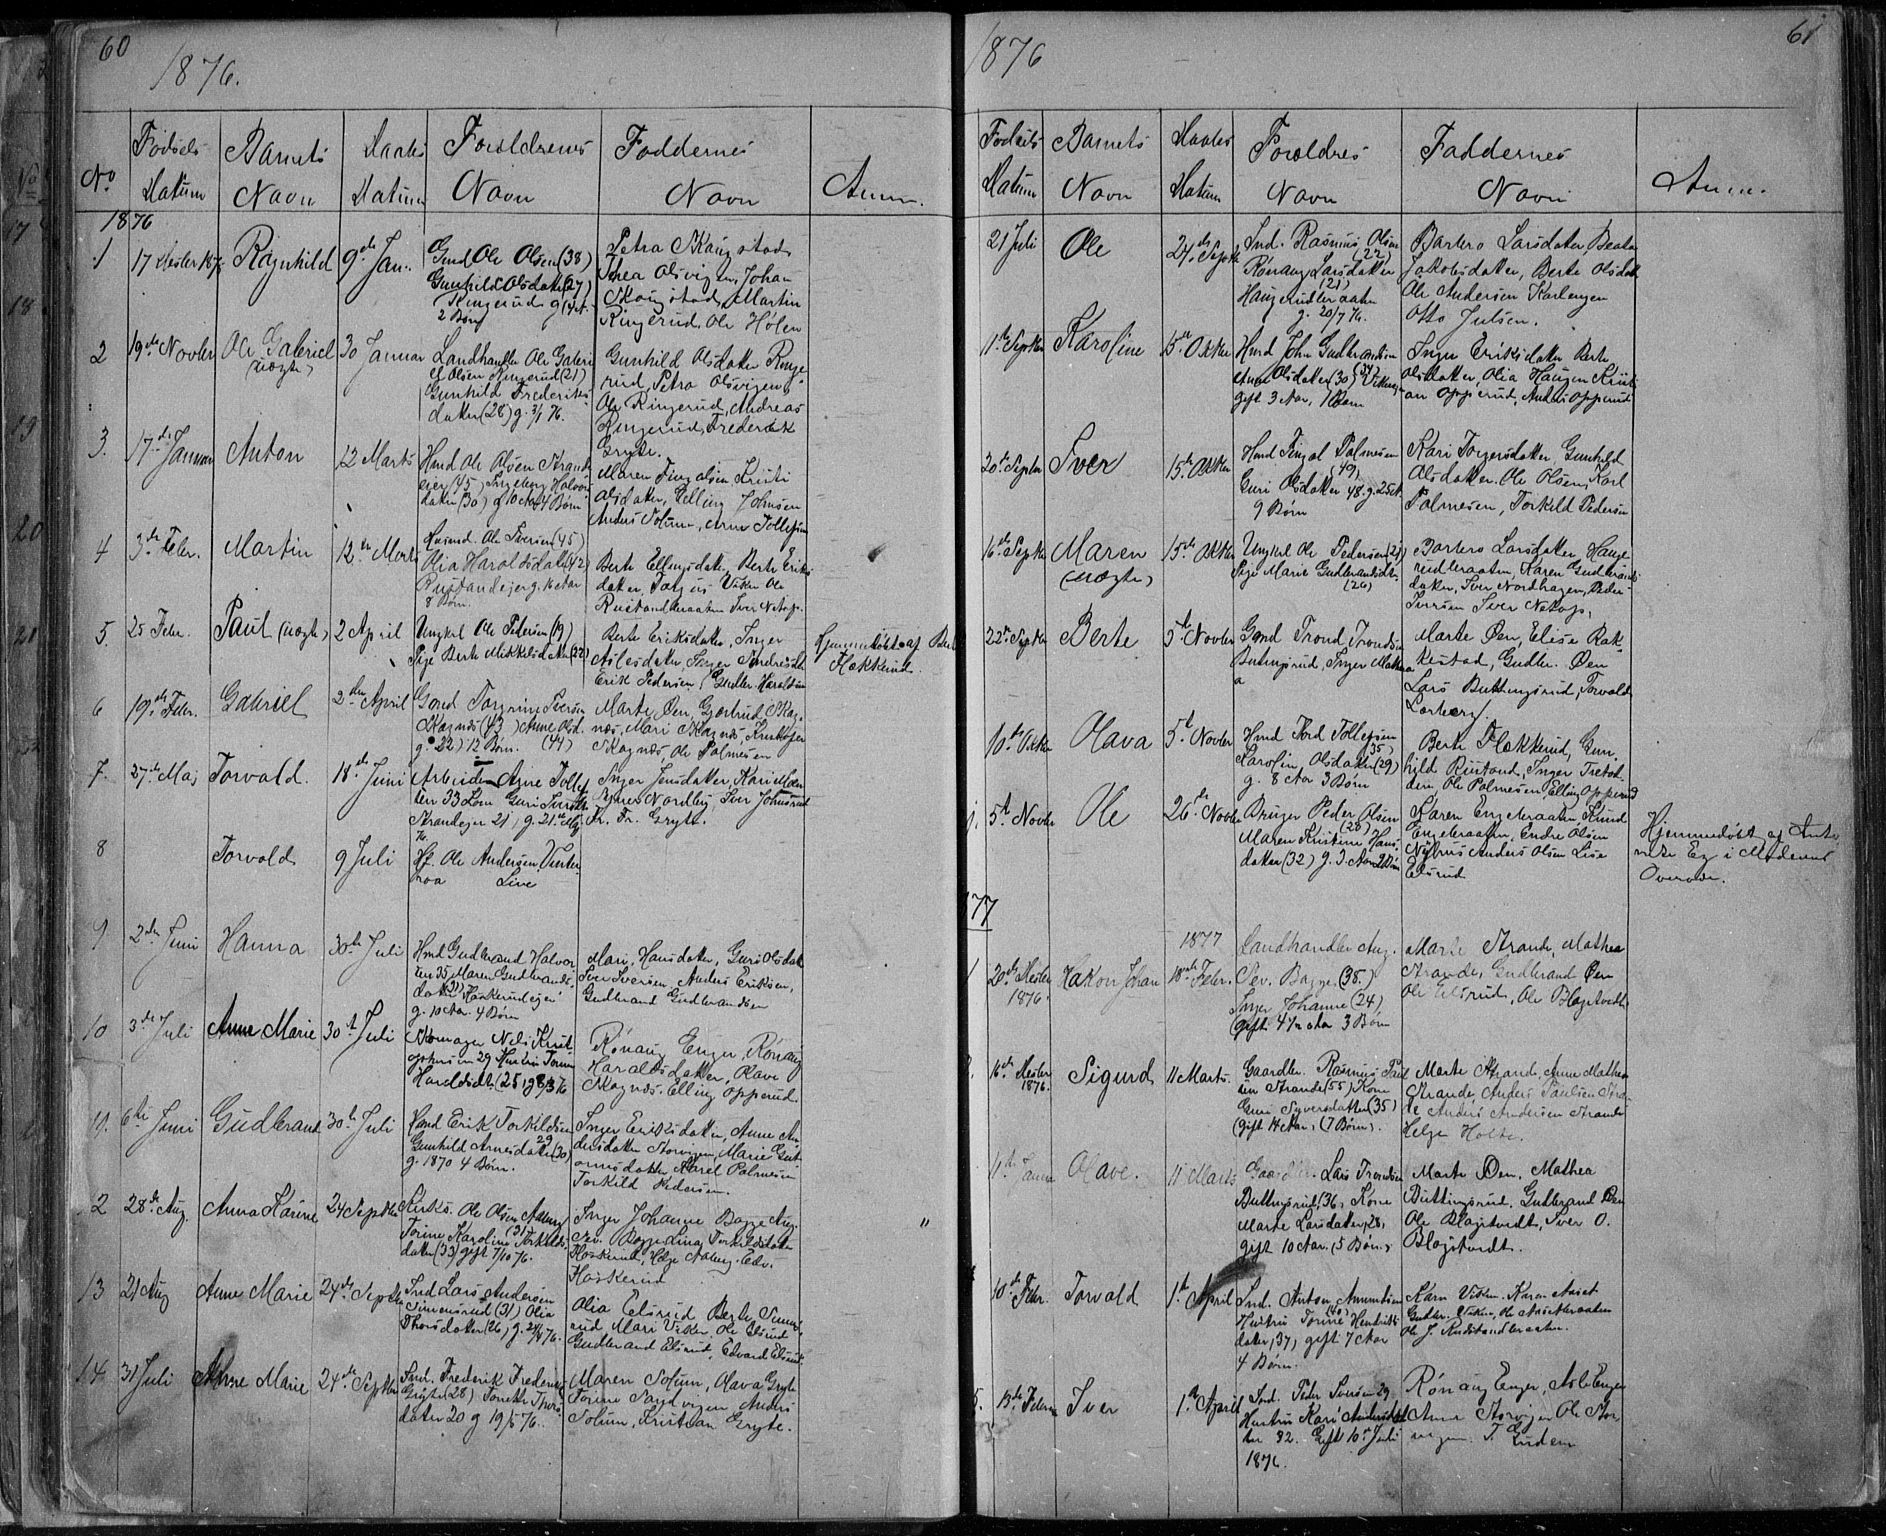 60
1876.
No
Fødsels
Datum
Barnets
Navn
Daabs
Datum
Forældrenes
Navn
Faddernes
Navn
Anm.
1876
1
17 Desber 1875
Ragnhild
9de Jan.
Gmd Ole Olsen (38)
Gunhild Olsdatter (27)
Ringerud
2 Børn
Petra Skaugstad
Thea Olsvigen, Johan
Skaugstad, Martin
Ringerud, Ole Holen
2
19de Novber
Ole Gabriel
(uægte)
30 Januar
Landhandler Ole Gabri
el Olsen Ringerud (21)
Gunhild Frederiks
datter (28) g. 3/1 76.
Gunhild Olsdatter Ringe
rud, Petra Olsvigen,
Ole Ringerud, Andreas
Ringerud, Frederik
Gryte.
3.
17de Januar
Anton
12 Marts
Hmd Ole Olsen Strand
eier (45) Ingeborg Halvors
datter (30) g 10 Aar 4 Børn
Maren Fingalsen Kristi
Olsdatter, Elling Johnsen
Anders Solum, Arne Tollefsen
4
3de Febr.
Martin
12te Marts
Husmd. Ole Iversen (45)
Olia Haroldsdatter (42)
Rustandeier g. 16 Aar
8 Børn.
Berte Ellingsdatter, Berte Eriks
datter, Viken Ole
Rustandbraaten Iver Netop.
5.
25 Febr.
Paul (uægte)
2 April
Ungkrl Ole Pedersen (19)
Pige Berte Mikkelsdatter (22)
Berte Eriksdatter, Inger
Aslesdatter, Inger Andreasdt
Erik Pedersen, Gudbr. Haroldsen
Hjemmedøbt af Berte
Flækkerud.
6
19de Febr.
Gabriel
2den April
Gmd Torgrim Iversen
Skagnæs (43) Anne Olsd.
g. 22) 12 Børn. (44)
Marte Øen, Gjertrud Skag
næs, Mari Skagnæs, Kristofer
Skagnæs, Ole Palmesen
7.
27de Maj
Torvald.
18de Juni
Arbeider Arne Tollef
sen 33 Guri Iversdt
Strandeger 21, g. 21de Maj
76
Inger Jensdatter, Kari Moen
Nordby, Iver Johnsrud
Fr. Fr. Gryte.
8
Torvald
9 Juli
Hf. Ole Andersen Vester
roa Live
9
2den Juni
Hanna
30te Juli
Hmd Gudbrand Halvor
sen 35 Maren Gudbrands
datter (31) Haskerudeien
g. 10 Aar. 4 Børn
Mari Hansdatter, Guri Olsdatt
Iver Iversen, Anders Eriksen,
Gudbrand Gudbrandsen
10
3de Juli
Anne Marie
30te Juli
Skomager Nels Krist
ophersen 29 Hustru Torine
Haroldsdt. (25) g 8/3 76
Rønaug Enger, Rønaug
Haraldsdatter, Olave
Skagnæs, Elling Opperud.
11.
6te Juni
Gudbrand
30te Juli
Hmd Erik Torkildsen
29
Gunhild Arnesdatter (30)
g. 1870 4 Børn.
Inger Eriksdatter, Anne An
dersdatter Storvigen, Marie Gut
ormsdatter Karel Palmesen
Torkild Pedersen.
2
28de Aug.
Anna Karine
24 Septbr
Kirks. Ole Olsen Aaberg
(31)
Torine Karoline Torkilds
datter (33) gift 7/10 76.
Inger Johanne Bagge Aug.
Sev. Bagge Lina Torkildsdatter
Haskerud, Helge Aaberg. Edv.
Haskerud
"
13
21 Aug
Anne Marie
24de Septbr
Ind Lars Andersen
Simensrud (31) Olia
Thorsdatter (26) g. 24/9 76.
Olia Elsrud Berte Simens
rud Mari Viken, Ole Elsrud
Gudbrand Elsrud, Edvard Elsrud.
14
31 Juli
Anne Marie
24de Septbr
Ind. Frederik Frederiks
Gryte (28) Torette Ivers
datter 20 g 19/5 76.
Maren Solum, Olava Gryte
Torine Sagvigen Anders
Solum, Kristian Gryte.
61
1876
Fødsels
Datum
Barnets
Navn
Daabs
Datum
Forældres
Navn
Faddernes
Navn
Anm.
21 Juli
Ole
24de Septbr
Ind. Rasmus Olsen
(22)
Rønaug Larsdatter
(21)
Haugerudbraaten
g. 20/7 76.
Barbro Larsdatter, Beata
Jakobsdatter, Berte Olsdatt
Ole Andersen Karlengen
Otto Julsen.
11te Septbr
Karoline
15de Oktbr
Hmd John Gudbrandsen
(34)
Anne Olsdatter (30) Vikens
gift 3 Aar, 1 Barn
Inger Eriksdatter Berte
Olsdatter, Olia Haugen Kristi
an Opperud, Anders Opperud
20de Septbr
Iver
15de Oktbr
Hmd Fingal Palmesen
(49)
Guri Olsdatter 48. g. 25 A.
9 Børn
Kari Torgersdatter, Gunhild
Olsdatter. Ole Olsen, Karl
Palmesen, Torkild Pedersen
16de Septbr
Maren
(uægte)
15de Oktbr
Ungkrl Ole Pedersen (21)
Pige Marie Gudbrandsdt.
(26)
Barbro Larsdatter, Hauge
rudbraaten, Karen Gudbrands
datter, Iver Nordhagen, Peder
Iversen Iver Netop.
22de Septbr
Berte
5te Novbr
Gmd Trond Trondsen
Butingsrud, Inger Mathea
a
Marte Øen, Elise Rak
kestad, Gudbr. Øen
Lars Buttingsrud, Torvald
Lorberg.
10de Oktbr
Olava
5te Novbr
Hmd Tord Tollefsen
(35)
Karoline Olsdatter (29)
g. 8 Aar 3 Børn
Berte Flækkerud, Gun
hild Rustand, Inger Tretet
den, Ole Palmesen, Elling Opperud
5te Novbr
Ole
26de Novbr
Bruger Peder Olsen
(28)
Maren Kristine Hans
datter (32) g. 3. Aar 2 Børn
Karen Engebraaten, Knud
Engebraaten, Endre Olsen
Nybrus Anders Olsen Lise
Elsrud
Hjemmedøbt af Anto
nette Eg i Moderens
Overvær.
77
1
20de Desber
1876.
Hakon Johan
1877
18de Febr.
Landhandler Aug.
Sev. Bagge (38.)
Inger Johanne (24)
Gift 4 1/2 Aar 3 Børn
Marte Strande, Mathea
Strande, Gudbrand Øen
Ole Elsrud, Ole Blagstvedt
16de Desber
1876.
Sigurd
11 Marts.
Gaardbr. Rasmus Paul
sen Strande (55) Kone
Guri Syversdatter (35)
(gift 14 Aar, (7 Børn).
Marte Strande, Anne Mathea
Strande, Anders Paulsen Stra
de Anders Andersen Strande
Helge Holte.
11te Janr
Olave.
11 Marts
Gaardbr. Lars Trondsen
Buttingsrud (36) Kone
Marte Larsdatter, 28,
gift 10 Aar. (5 Børn)
Marte Øen. Mathea
Buttingsrud. Gudbrand Øen
Ole Blagstvedt, Iver O.
Blagstvedt.
10de Febr.
Torvald
1ste April
Ind. Anton Amundsen
(40)
Hustru Torine Hendriks
datter, 37, gift 7 Aar
4 Børn.
Karn Viken. Karen Aaset
Gudbr. Viken, Ole Aasetbraaten
Ole J. Rustandbraaten.
5.
13de Febr
Iver
1ste April
Ind. Peder Iversen 29
Hustru Kari Andersdat
ter 32. Gift 10de Juli
1876.
Rønaug Enger, Asle Enger
Anne Storvigen Ole Stor
vigen. T. Gudem